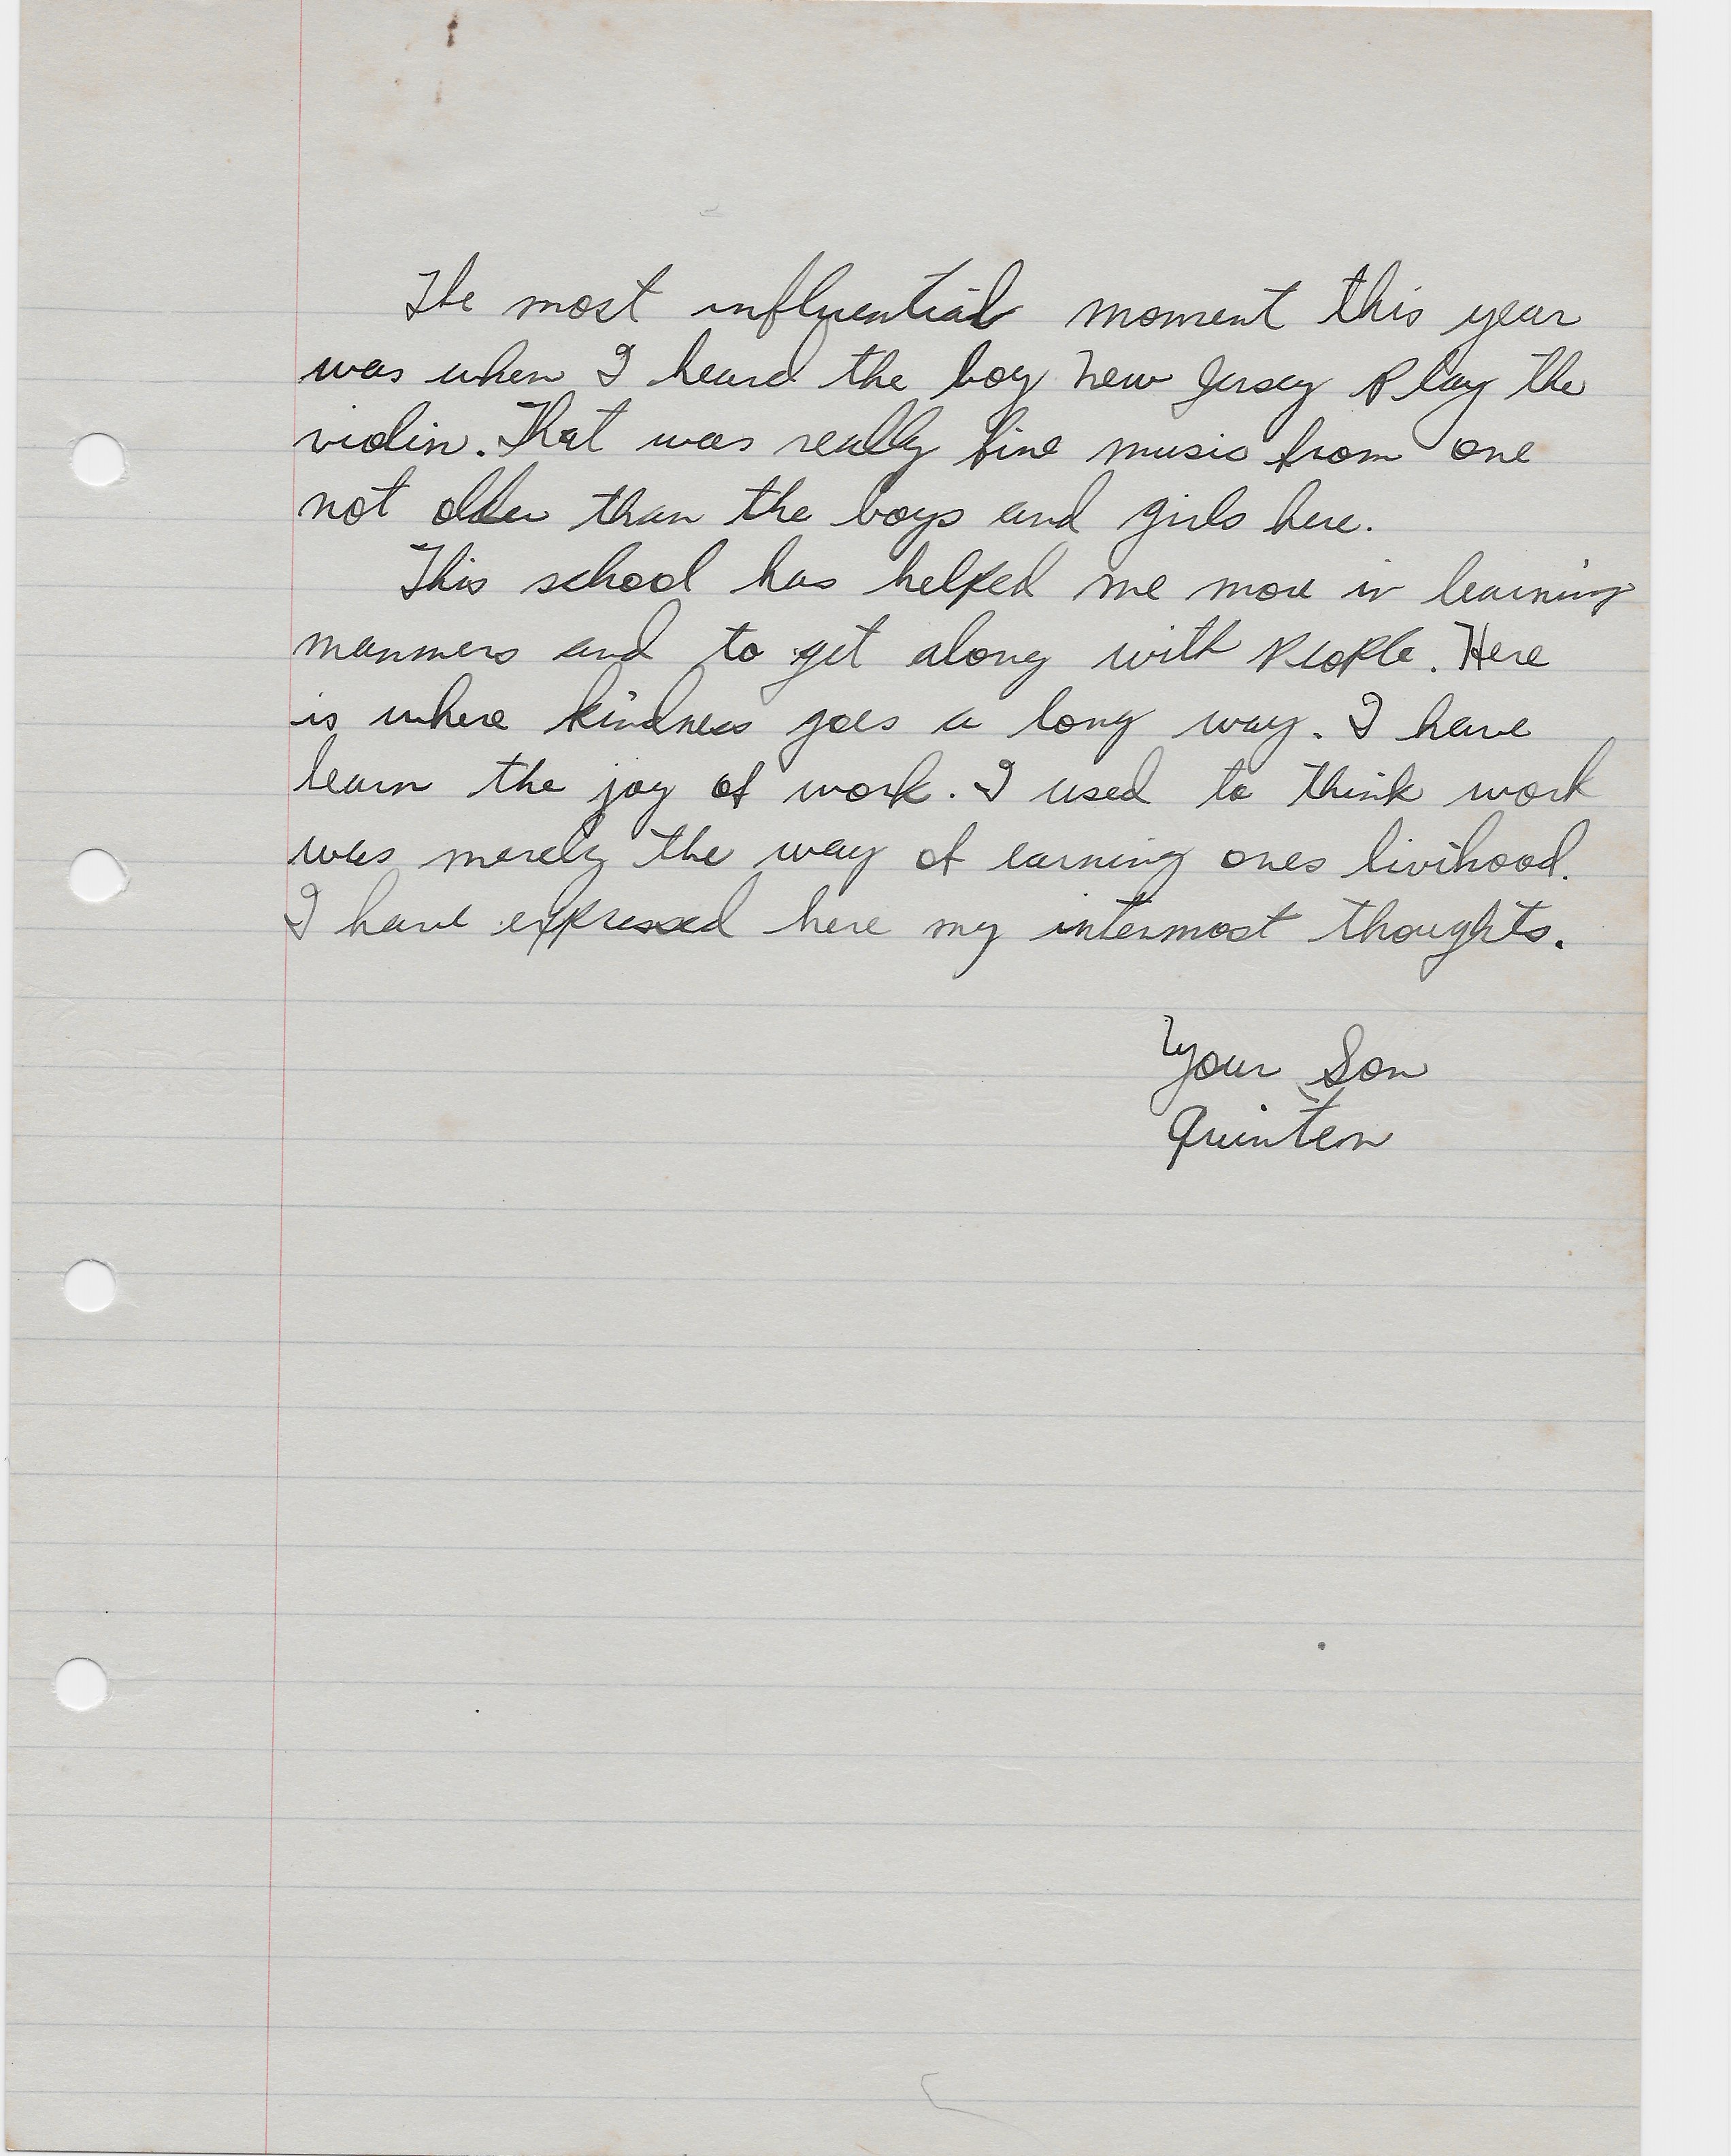 The most influential moment this year
was when I heard the boy New Jersey play the
violin. That was really fine music from one
not older than the boys and girls here.
This school has helped me more in learning
manners and to get along with people. Here
is where kindness goes a long way. I have
learn the joy of work. I used to think work
was merely the way of earning ones livihood.
I have expressed here my intermost thoughts.
Your Son
Quinton